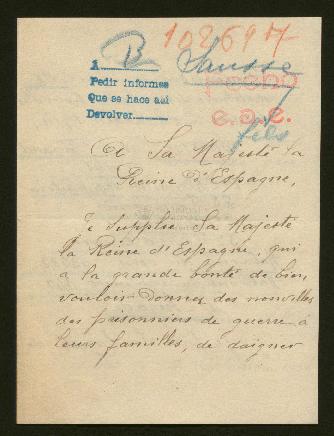 102697
B
1
Pedir informes
Que se hace así
Devolver
C. D. E.
A Sa Majesté la
Reine d'Espagne,
Je supplie Sa Majesté
la Reine d'Espagne, qui
a la grande bonté de bien
vouloir donner des nouvelles
des prisonniers de guerre à
leurs familles, de daigner